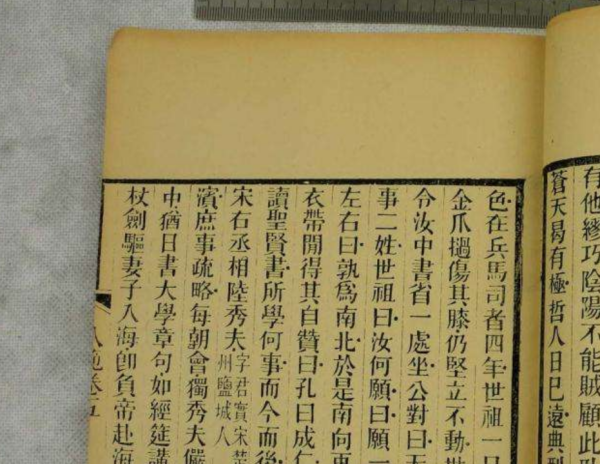 有他繆巧陰陽不能賊顧此
蒼天曷有極哲人日巳遠典
色在兵馬司者四年世祖一日
金爪撾傷其膝仍堅立不動世
令汝中書省一處坐公對曰
事二姓世祖曰汝何願曰願一
左右曰孰爲南北於是南向
衣帶閒得其自贊曰孔曰成仁
讀聖賢書所學何事而今而後
宋右丞相陸秀夫字君實宋楚
州鹽城人
濱庶事疏略每朝會獨秀夫儼
中猶日書大學章句如經筵講
杖劍驅妻子入海卽負帝赴海
卷五